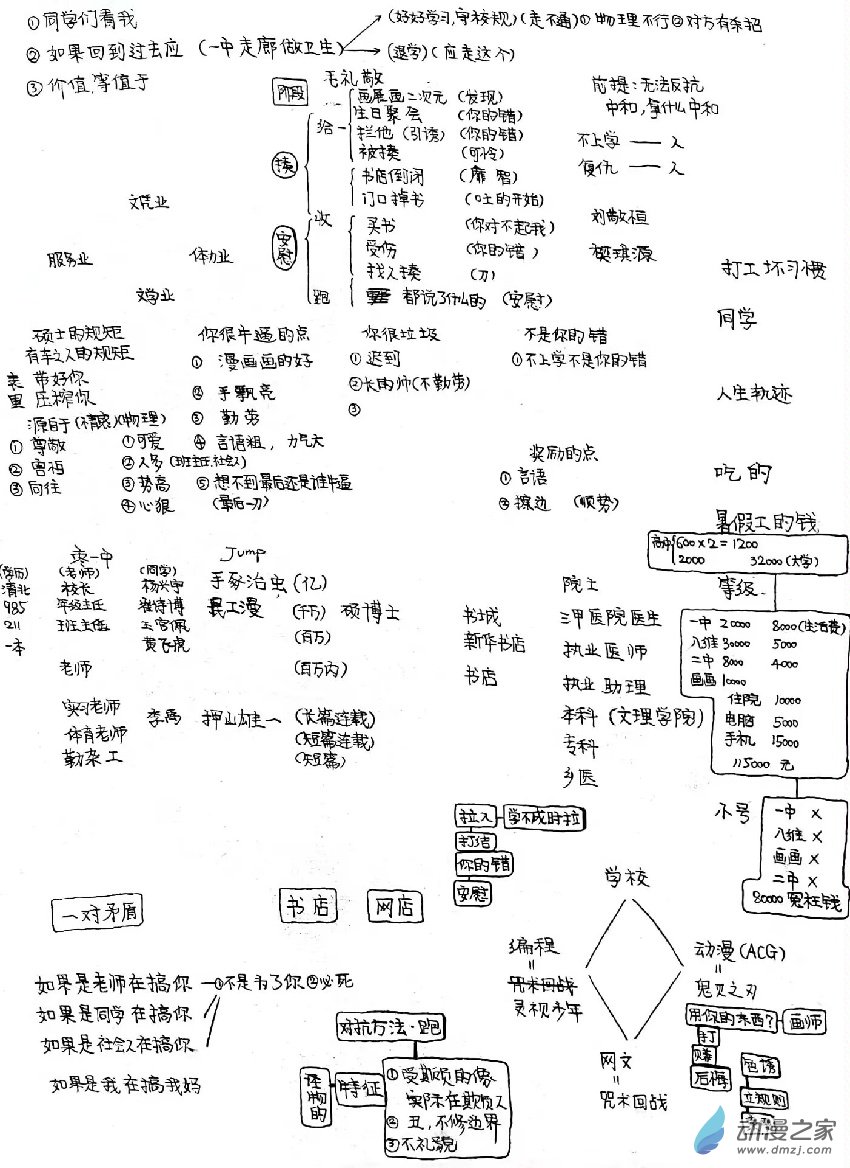 ①同学们看我
②如果回到过去应(一中走廊做卫生)
(好好学习,守校规)(走不通)①物理不行②对方有杀招
(退学)(应走这个)
③价值,等值于
阶段
毛礼敬
画展画二次元(发现)
生日聚会(你的错)
给
拦他(引诱)(你的错)
被揍(可怜)
揍
书店倒闭
门口掉书(吐的开始)
前提:无法反抗
中和,拿什么中和
不上学——人
复仇——人
刘敬恒
樊琪源
安慰
收
买书(你对不起我)
受伤(你的错)
找人揍(刀)
跑
都说了什么的(安慰)
文荒业
服务业
体力业
文学业
打工坏习惯
同学
人生轨迹
吃的
暑假工的钱
硕士的规矩
有车之人的规矩
表 带好你
里 压榨你
源自于(情感)(物理)
①尊敬
②害怕
③向往
①可爱
②人多(班主任,社会人)
③势高
④心狠(最后一刀)
你很牛逼的点
①漫画画的好
②手飘亮
③勤劳
④言语粗,力气大
⑤想不到最后还是谁牛逼
你很垃圾
①迟到
②长的帅(不勤劳)
③
不是你的错
①不上学不是你的错
奖励的点
①言语
②擦边(顺势)
高中
600×2=1200
2000 32000(大学)
等级
一中 20000 8000(生活费)
八维 30000 5000
二中 8000 4000
画画 10000
住院 10000
电脑 5000
手机 15000
115000元
小号
一中 X
八维 X
画画 X
二中 X
80000冤枉钱
枣一中
(学历) (老师) (同学)
清北 校长 杨兴宇
985 年级主任 崔诗博
211 班主任 王宫佩
一本 黄飞虎
老师
实习老师 李禹
体育老师
勤杂工
Jump
手冢治虫(亿)
(千万) 硕博士
(百万)
(百万内)
押山雄一(长篇连载)
(短篇连载)
(短篇)
书城
新华书店
书店
院士
三甲医院医生
执业医师
执业助理
本科(文理学院)
专科
乡医
拉入
学不成时拉
打结
你的错
安慰
一对矛盾
书店
网店
学校
编程
=
灵视少年
动漫(ACG)
=
鬼灭之刃
网文
=
咒术回战
用你的东西?
画师
打
赚
后悔
色诱
立规则
如果是老师在搞你—①不是为了你②必死
如果是同学在搞你
如果是社会人在搞你
如果是我在搞我好
对抗方法·跑
怪物的
特征
①受欺负的像
实际在欺负人
②丑,不修边界
③不礼貌
动漫之家
www.dmzj.com